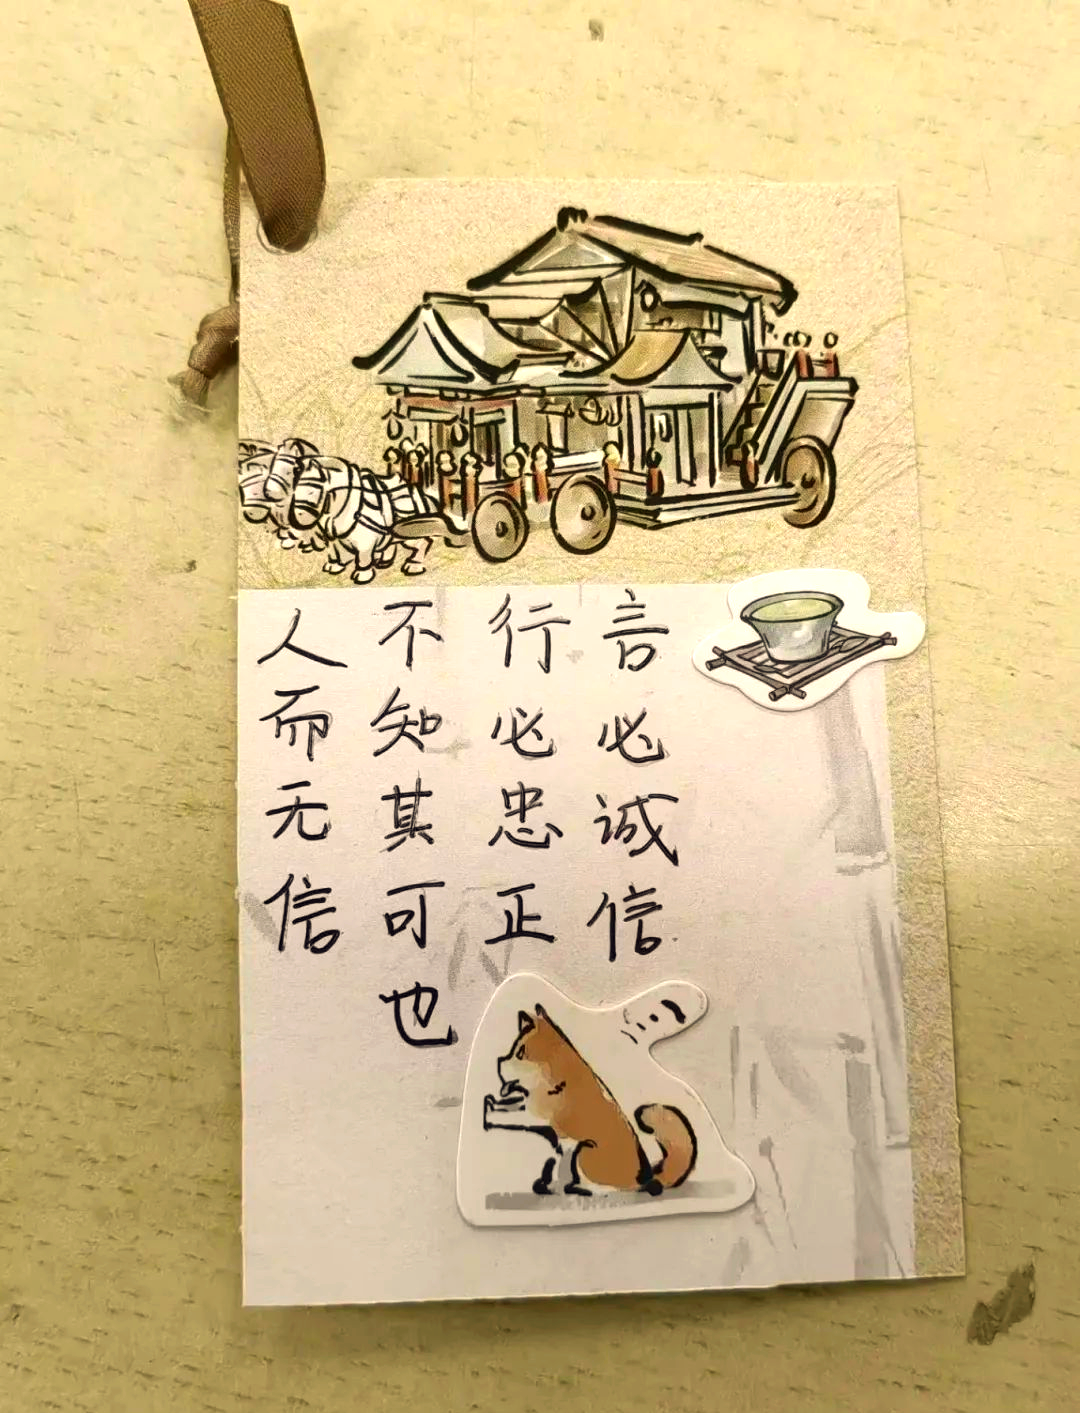 人而无信
不知其可也
行必忠正
言必诚信